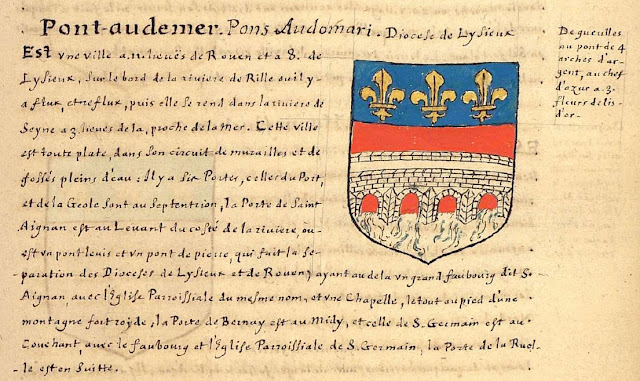 Pont-audemer. Pons Audomari. Diocese de Lysieux
Est vne ville a 11. lieuës de Rouen et a 8. de
Lysieux, sur le bord de la riuiere de Rille ou il y-
a flux, et reflux, puis elle se rend dans la riuiere de
Seyne a 3. lieues de la, proche de la Mer. Cette ville
est toute plate, dans son circuit de murailles et de
fossés pleins d'eau: Il y a six Portes, celles du Port,
et de la Geole sont au Septentrion, la Porte de Saint
Aignan est au Leuant du costé de la riuiere, ou
est vn pont leuis et vn pont de pierre, qui fait la se-
paration des Dioceses de Lysieux et de Rouen, ayant au dela vn grand fauxbourg dit S.
Aignan, auec l'Eglise Parroissiale du mesme nom, et vne Chapelle, le tout au pied d'une
montagne fort royde, la Porte de Bernay est au Midy, et celle de S. Germain est au
Couchant, auec le fauxbourg et l'Eglise Parroissiale de S. Germain, la Porte de la Ruel-
le est en suitte.
De gueulles
au pont de 4
arches d'ar-
gent, au chef
d'azur a 3.
fleurs de lis
d'or.